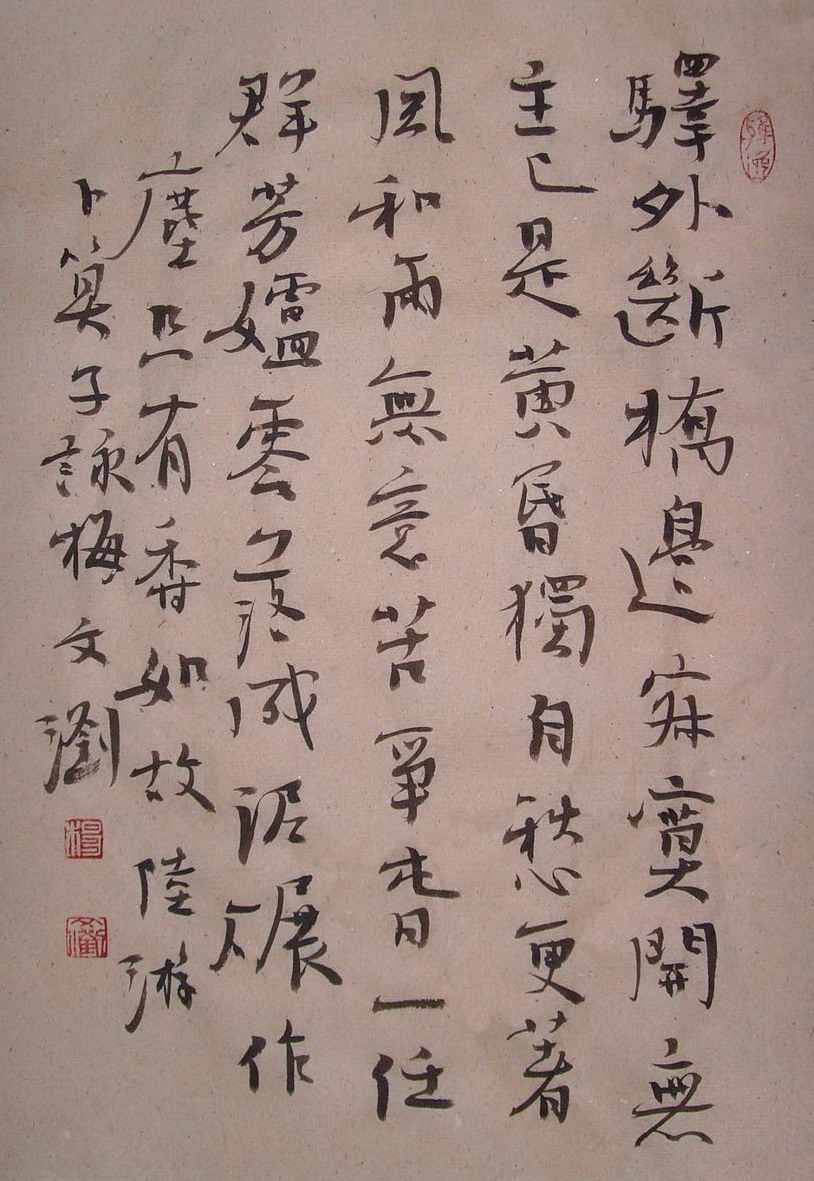 驛外斷橋邊寂寞開無
主已是黃昏獨自愁更著
風和雨無意苦爭春一任
群芳妒零落成泥碾作
塵只有香如故陸游
卜算子詠梅文瀏